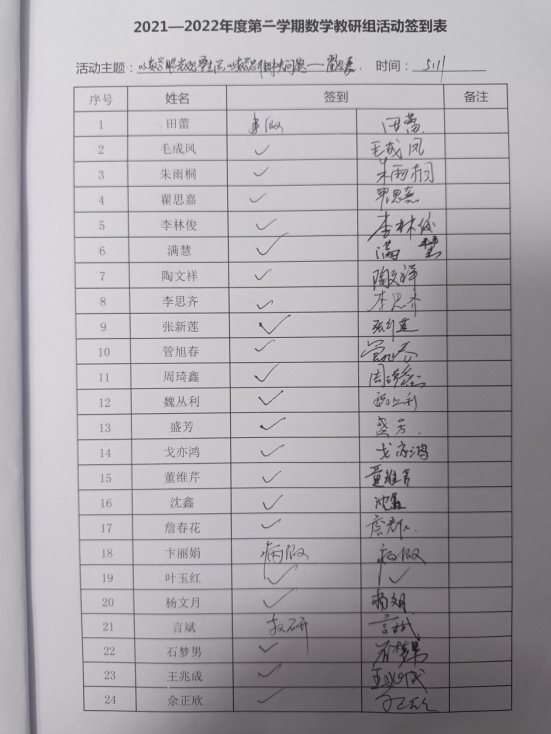 2021—2022年度第二学期数学教研组活动签到表
活动主题： 时间： 5.11
序号 姓名 签到 备注
1 田蕾 事假 田蕾
2 毛成凤 ✓ 毛成凤
3 朱雨桐 ✓ 朱雨桐
4 翟思嘉 ✓ 翟思嘉
5 李林俊 ✓ 李林俊
6 满慧 ✓ 满慧
7 陶文祥 ✓ 陶文祥
8 李思齐 ✓ 李思齐
9 张新莲 ✓ 张新莲
10 管旭春 ✓
11 周琦鑫 ✓ 周琦鑫
12 魏丛利 ✓ 魏丛利
13 盛芳 ✓ 盛芳
14 戈亦鸿 ✓ 戈亦鸿
15 董维芹 ✓ 董维芹
16 沈鑫 ✓ 沈鑫
17 詹春花 ✓
18 卞丽娟 病假 病假
19 叶玉红 ✓ ✓
20 杨文月 ✓ 杨文月
21 言斌 教研 言斌
22 石梦男 ✓ 石梦男
23 王兆成 ✓ 王兆成
24 佘正欣 ✓